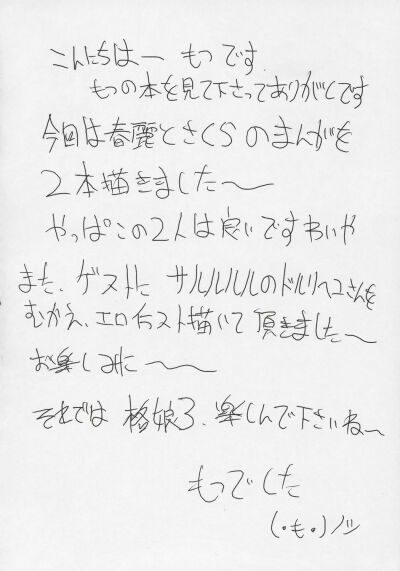 こんにちはー もつです
もつの本を見て下さってありがとです
今回は春麗とさくらのまんがを
2本描きました〜
やっぱこの2人は良いですわいや
また、ゲストに サルルルルのドルリヘユさんを
むかえ、エロイラスト描いて頂きました〜
お楽しみに〜〜
それでは 格娘3、楽しんで下さいね〜
もつでした
(・も・)ノシ